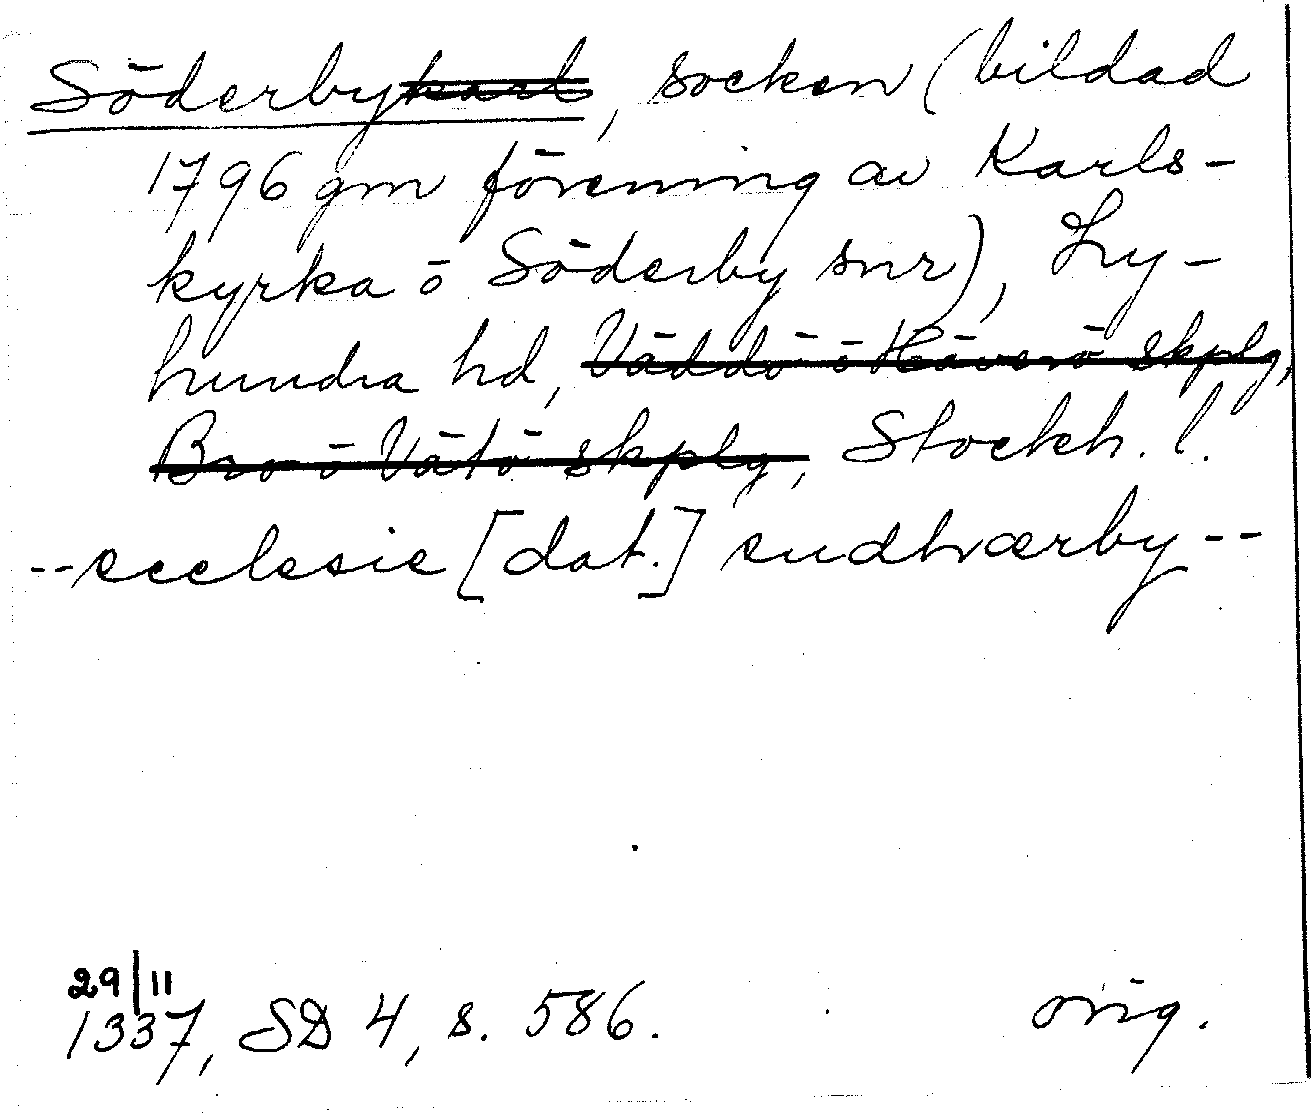 Söderbykarl, socken (bildad
1796 gm förening av Karls-
kyrka o Söderby snr), Ly-
hundra hd, Väddö o Häverö skplg,
Bro o Vätö skplg, Stockh. l.
--ecclesie [dat.] sudhærby--
29/11
1337, SD 4, s. 586. orig.